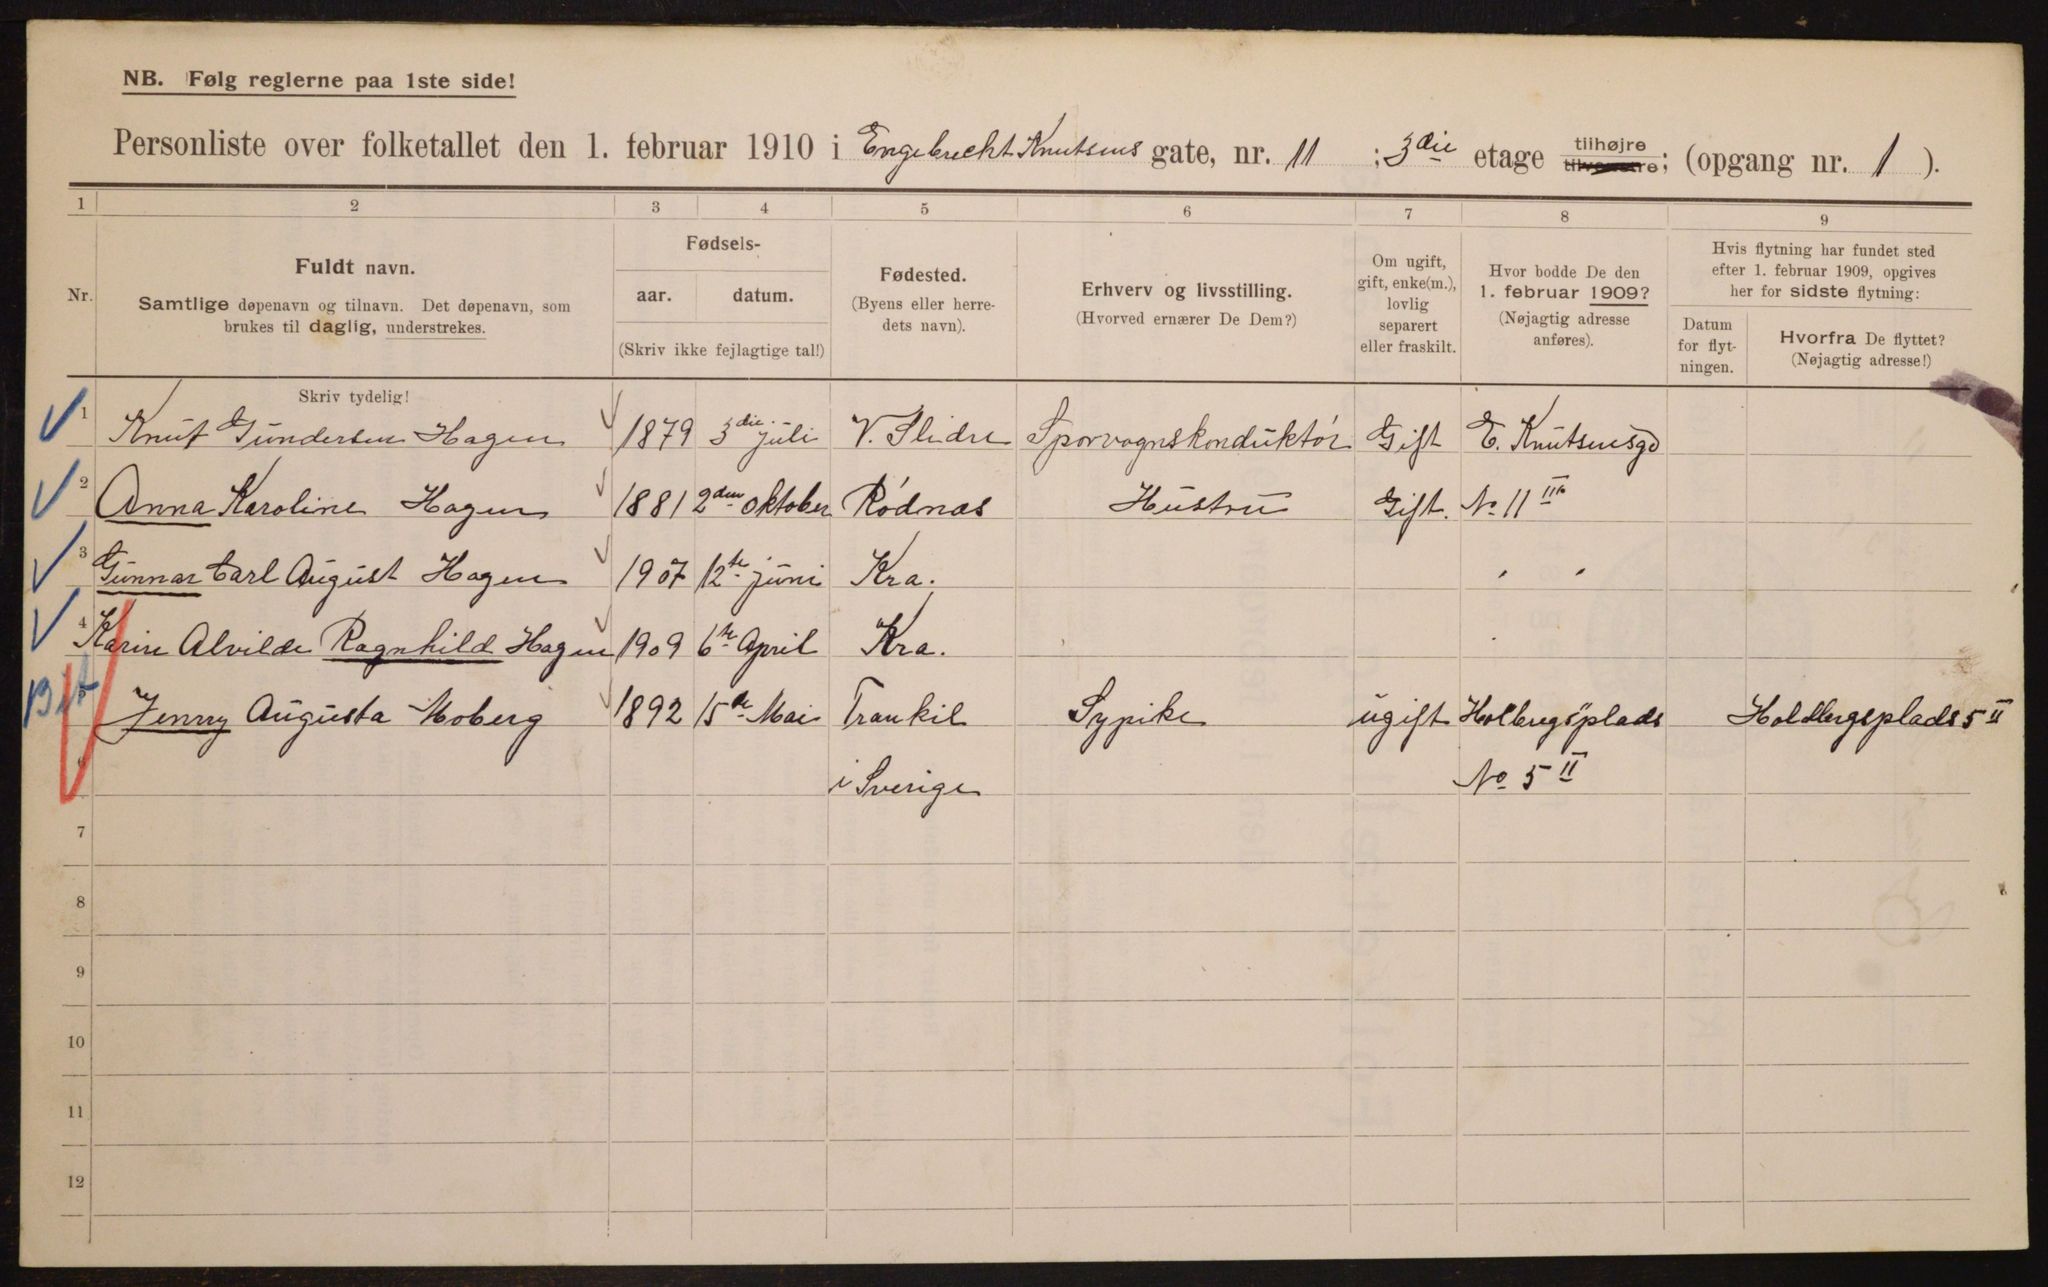 NB. Følg reglerne paa 1ste side!
Personliste over folketallet den 1. februar 1910 i Engebreckt Knutsens gate, nr. 11 ; 3die etage tilhøjre tilvenstre; (opgang nr. 1 ).
1 2 3 4 5 6 7 8 9
Nr.
Fuldt navn.
Samtlige døpenavn og tilnavn. Det døpenavn, som
brukes til daglig, understrekes.
Skriv tydelig!
Fødsels-
aar. datum.
(Skriv ikke fejlagtige tal!)
Fødested.
(Byens eller herre-
dets navn).
Erhverv og livsstilling.
(Hvorved ernærer De Dem?)
Om ugift,
gift, enke(m.),
lovlig
separert
eller fraskilt.
Hvor bodde De den
1. februar 1909?
(Nøjagtig adresse
anføres).
Hvis flytning har fundet sted
efter 1. februar 1909, opgives
her for sidste flytning:
Datum
for flyt-
ningen.
Hvorfra De flyttet?
(Nøjagtig adresse!)
1 Knut Gundersen Hagen 1879 3die juli V. Slidre Sporvognskonduktør Gift E. Knutsensgd
2 Anna Karoline Hagen 1881 2den oktober Rødnæs Hustru Gift. No 11 III
3 Gunnar Carl August Hagen 1907 12te juni Kra. " "
4 Karin Alvilde Ragnhild Hagen 1909 6te April Kra. "
5 Jenny Augusta Moberg 1892 15de Mai Trankil Sypike ugift Holbergsplads Holdbergsplads 5 II
6 i Sverige No 5 II
7
8
9
10
11
12